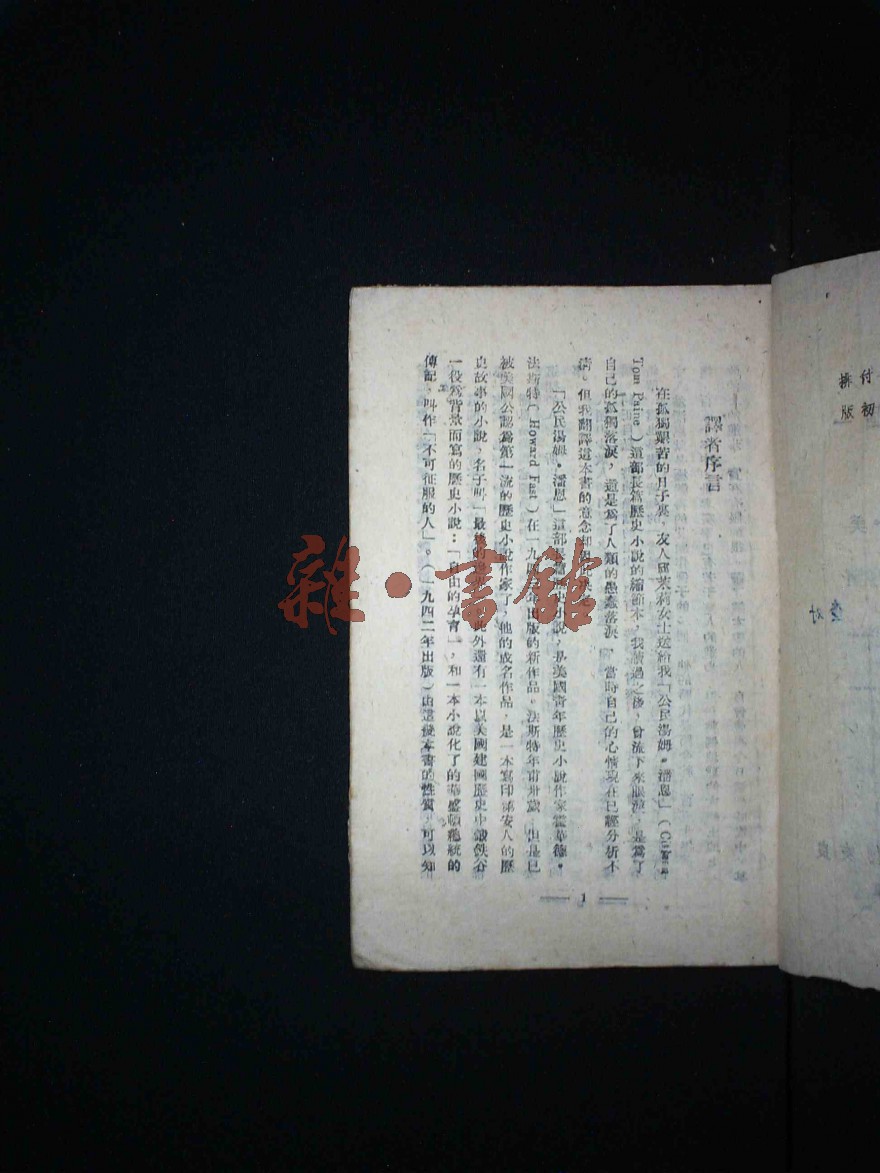 譯者序言
在孤獨艱苦的日子裏,友人
茉莉女士送給我「公民湯姆•潘恩」(Citizen
Tom Paine)這部長篇歷史小說的縮節本,我讀過之後,曾流下來眼淚,是爲了
自己的孤獨落淚,還是爲了人類的愚蠢落淚,當時自己的心情現在已經分析不
清。但我翻譯這本書的意念却
「公民湯姆•潘恩」這部
歷史小說,是美國青年歷史小說作家霍華德•
法斯特(Howard Fast)在一九四三年出版的新作品。法斯特年甫卅歲,但是已
被美國公認爲第一流的歷史小說作家了,他的成名作品,是一本寫印第安人的歷
史故事的小說,名子叫「最後的邊
此外還有一本以美國建國歷史中鐵谷
一役爲背景而寫的歷史小說:「自由的孕育」,和一本小說化了的華盛頓總統的
傳記,叫作「不可征服的人」。(一九四二年出版)由這幾本書的性質,可以知
1
雜•書館
付
排
初
版
校对